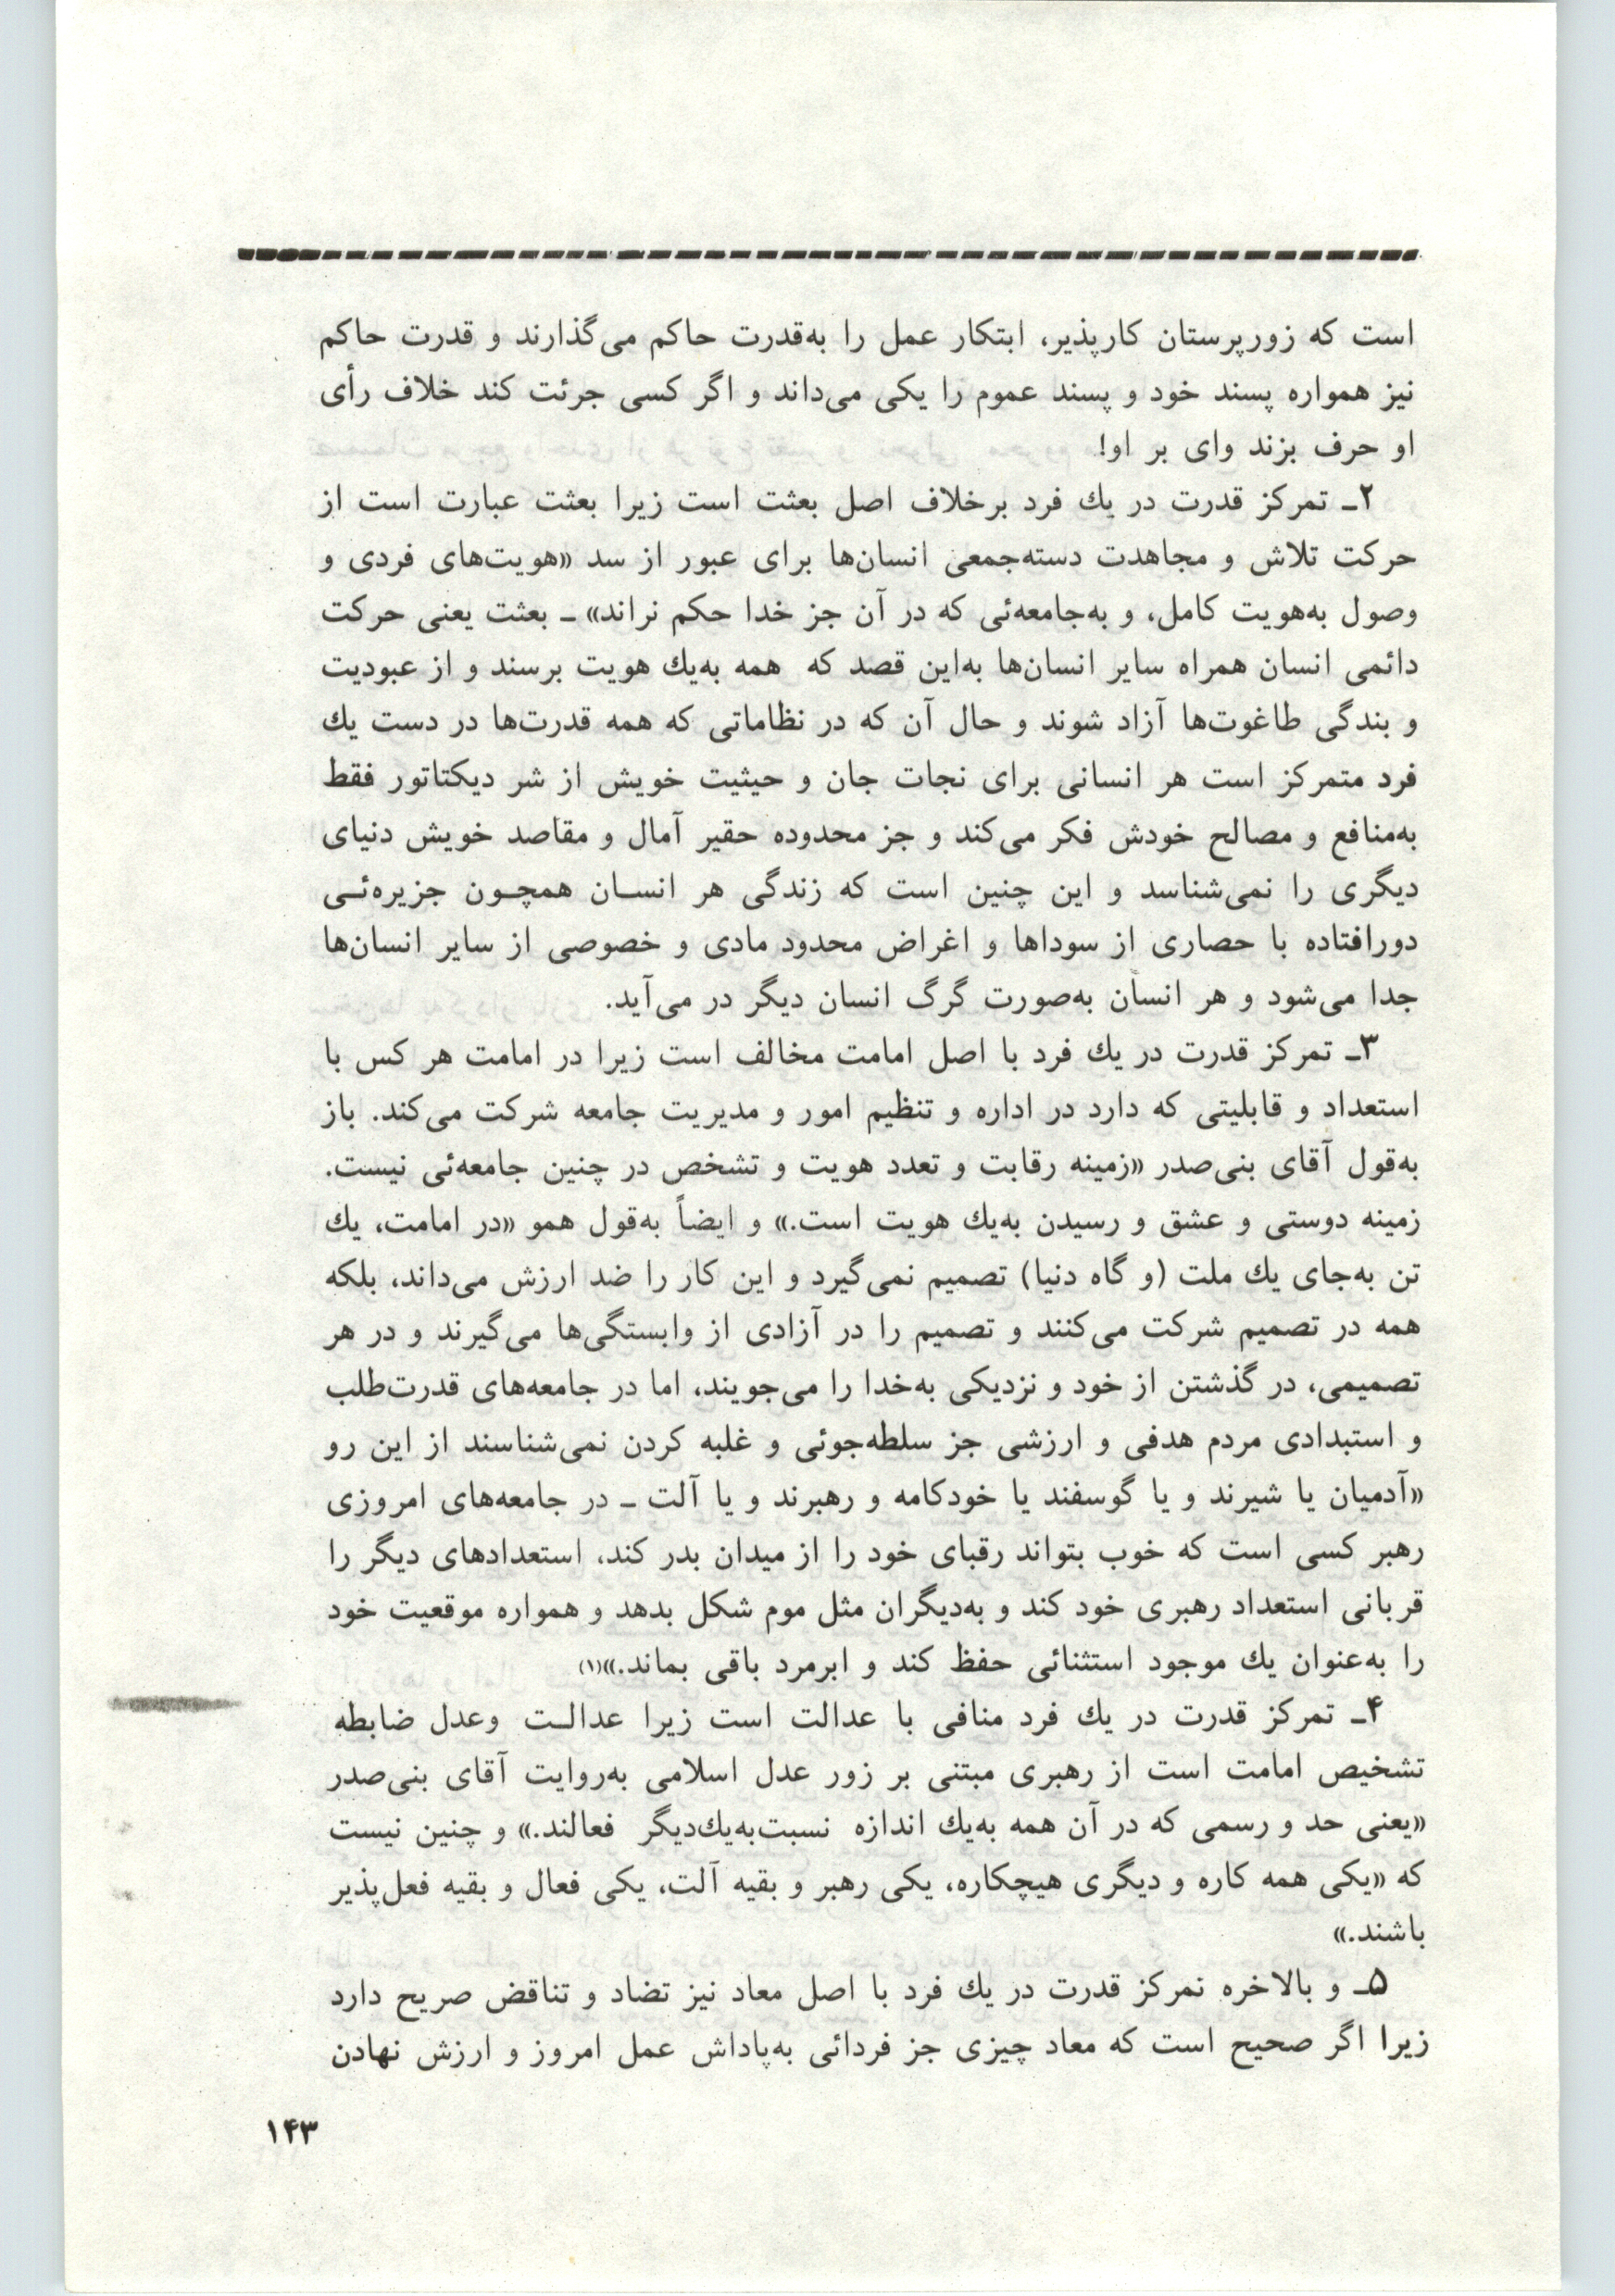 است که زورپرستان کارپذیر، ابتکار عمل را به‌قدرت حاکم می‌گذارند و قدرت حاکم
نیز همواره پسند خود و پسند عموم را یکی می‌داند و اگر کسی جرئت کند خلاف رأی
او حرف بزند وای بر او!
۲ـ تمرکز قدرت در یك فرد برخلاف اصل بعثت است زیرا بعثت عبارت است از
حرکت تلاش و مجاهدت دسته‌جمعی انسان‌ها برای عبور از سد «هویت‌های فردی و
وصول به‌هویت کامل، و به‌جامعه‌ئی که در آن جز خدا حکم نراند» ـ بعثت یعنی حرکت
دائمی انسان همراه سایر انسان‌ها به‌این قصد که همه به‌یك هویت برسند و از عبودیت
و بندگی طاغوت‌ها آزاد شوند و حال آن که در نظاماتی که همه قدرت‌ها در دست یك
فرد متمرکز است هر انسانی برای نجات جان و حیثیت خویش از شر دیکتاتور فقط
به‌منافع و مصالح خودش فکر می‌کند و جز محدوده حقیر آمال و مقاصد خویش دنیای
دیگری را نمی‌شناسد و این چنین است که زندگی هر انسـان همچـون جزیره‌ئـی
دورافتاده با حصاری از سوداها و اغراض محدود مادی و خصوصی از سایر انسان‌ها
جدا می‌شود و هر انسان به‌صورت گرگ انسان دیگر در می‌آید.
۳ـ تمرکز قدرت در یك فرد با اصل امامت مخالف است زیرا در امامت هر کس با
استعداد و قابلیتی که دارد در اداره و تنظیم امور و مدیریت جامعه شرکت می‌کند. باز
به‌قول آقای بنی‌صدر «زمینه رقابت و تعدد هویت و تشخص در چنین جامعه‌ئی نیست.
زمینه دوستی و عشق و رسیدن به‌یك هویت است.» و ایضاً به‌قول همو «در امامت، یك
تن به‌جای یك ملت (و گاه دنیا) تصمیم نمی‌گیرد و این کار را ضد ارزش می‌داند، بلکه
همه در تصمیم شرکت می‌کنند و تصمیم را در آزادی از وابستگی‌ها می‌گیرند و در هر
تصمیمی، در گذشتن از خود و نزدیکی به‌خدا را می‌جویند، اما در جامعه‌های قدرت‌طلب
و استبدادی مردم هدفی و ارزشی جز سلطه‌جوئی و غلبه کردن نمی‌شناسند از این رو
«آدمیان یا شیرند و یا گوسفند یا خودکامه و رهبرند و یا آلت ـ در جامعه‌های امروزی
رهبر کسی است که خوب بتواند رقبای خود را از میدان بدر کند، استعدادهای دیگر را
قربانی استعداد رهبری خود کند و به‌دیگران مثل موم شکل بدهد و همواره موقعیت خود
را به‌عنوان یك موجود استثنائی حفظ کند و ابرمرد باقی بماند.»(۱)
۴ـ تمرکز قدرت در یك فرد منافی با عدالت است زیرا عدالـت وعدل ضابطه
تشخیص امامت است از رهبری مبتنی بر زور عدل اسلامی به‌روایت آقای بنی‌صدر
«یعنی حد و رسمی که در آن همه به‌یك اندازه نسبت‌به‌یك‌دیگر فعالند.» و چنین نیست
که «یکی همه کاره و دیگری هیچکاره، یکی رهبر و بقیه آلت، یکی فعال و بقیه فعل‌پذیر
باشند.»
۵ـ و بالاخره نمرکز قدرت در یك فرد با اصل معاد نیز تضاد و تناقض صریح دارد
زیرا اگر صحیح است که معاد چیزی جز فردائی به‌پاداش عمل امروز و ارزش نهادن
۱۴۳